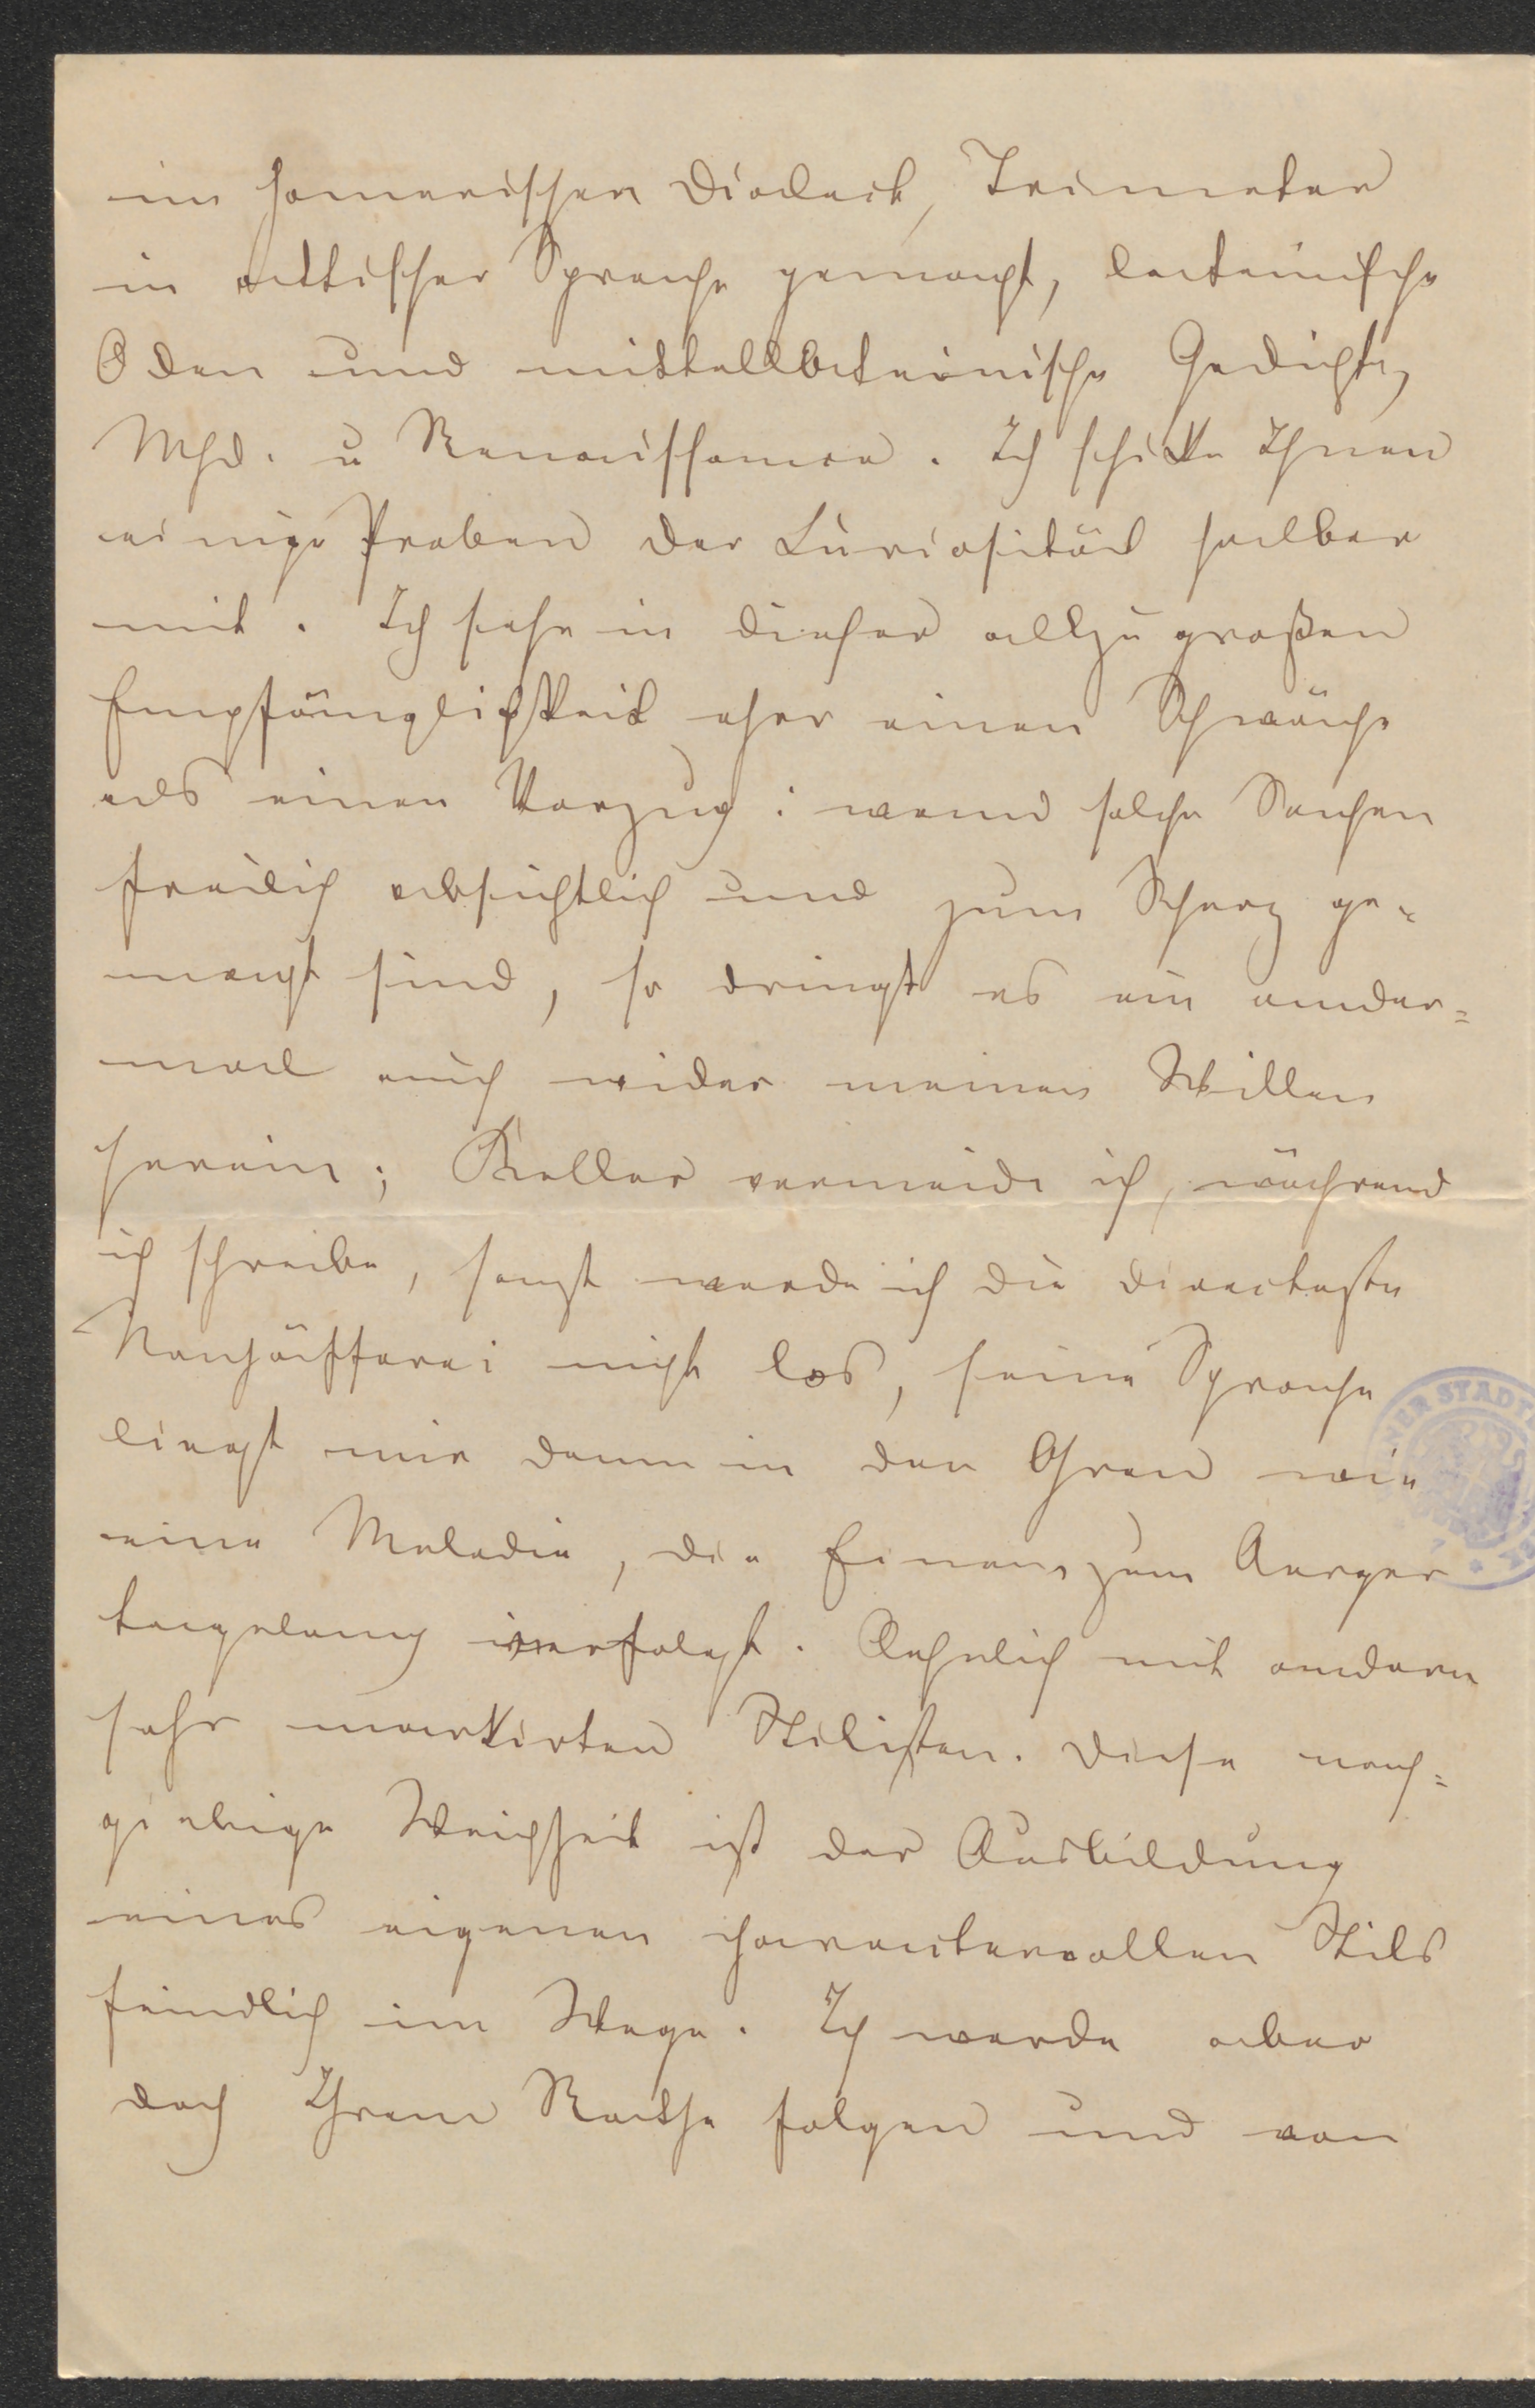 im homerischen Dialect, Trimeter
in attischer Sprache gemacht, lateinische
Oden und mittellateinische Gedichte,
Mhd. u Renaissance. Ich schicke Ihnen
einige Proben der Curiosität halber
mit. Ich sehe in dieser allzu großen
Empfänglichkeit eher einen Schwäche
als einen Vorzug: wenn solche Sachen
freilich absichtlich und zum Scherz ge=
macht sind, so dringt es ein ander=
mal auch wider meinen Willen
herein; Keller vermeide ich, während
ich schreibe, sonst werde ich die directeste
Nachäfferei nicht los, seine Sprache
liegt mir dann in den Ohren wie
eine Melodie, die Einen zum Aerger
tagelang verfolgt. Aehnlich mit andern
sehr markirten Stilisten. Diese nach=
giebige Weichheit ist der Ausbildung
eines eigenen charactervollen Stils
feindlich im Wege. Ich werde aber
doch Ihrem Rathe folgen und von